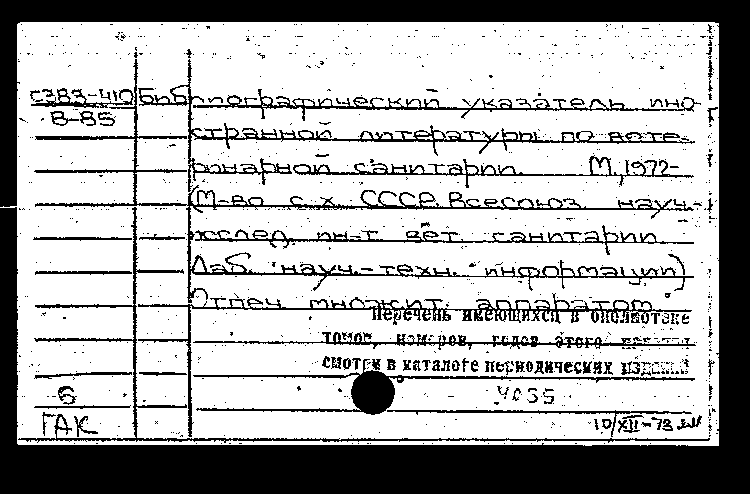 С383-410 Библиографический указатель ино-
В-85 странной литературы по вете-
ринарной санитарии. М., 1972-
(М-во с.х. СССР. Всесоюз. науч.-
исслед. ин-т вет. санитарии.
Лаб. науч.-техн. информации)
Отпеч. множит. аппаратом.
Перечень имеющихся в библиотеке
томов, номеров, годов этого издания
смотри в каталоге периодических изданий
6
ГАК
10/XII-73